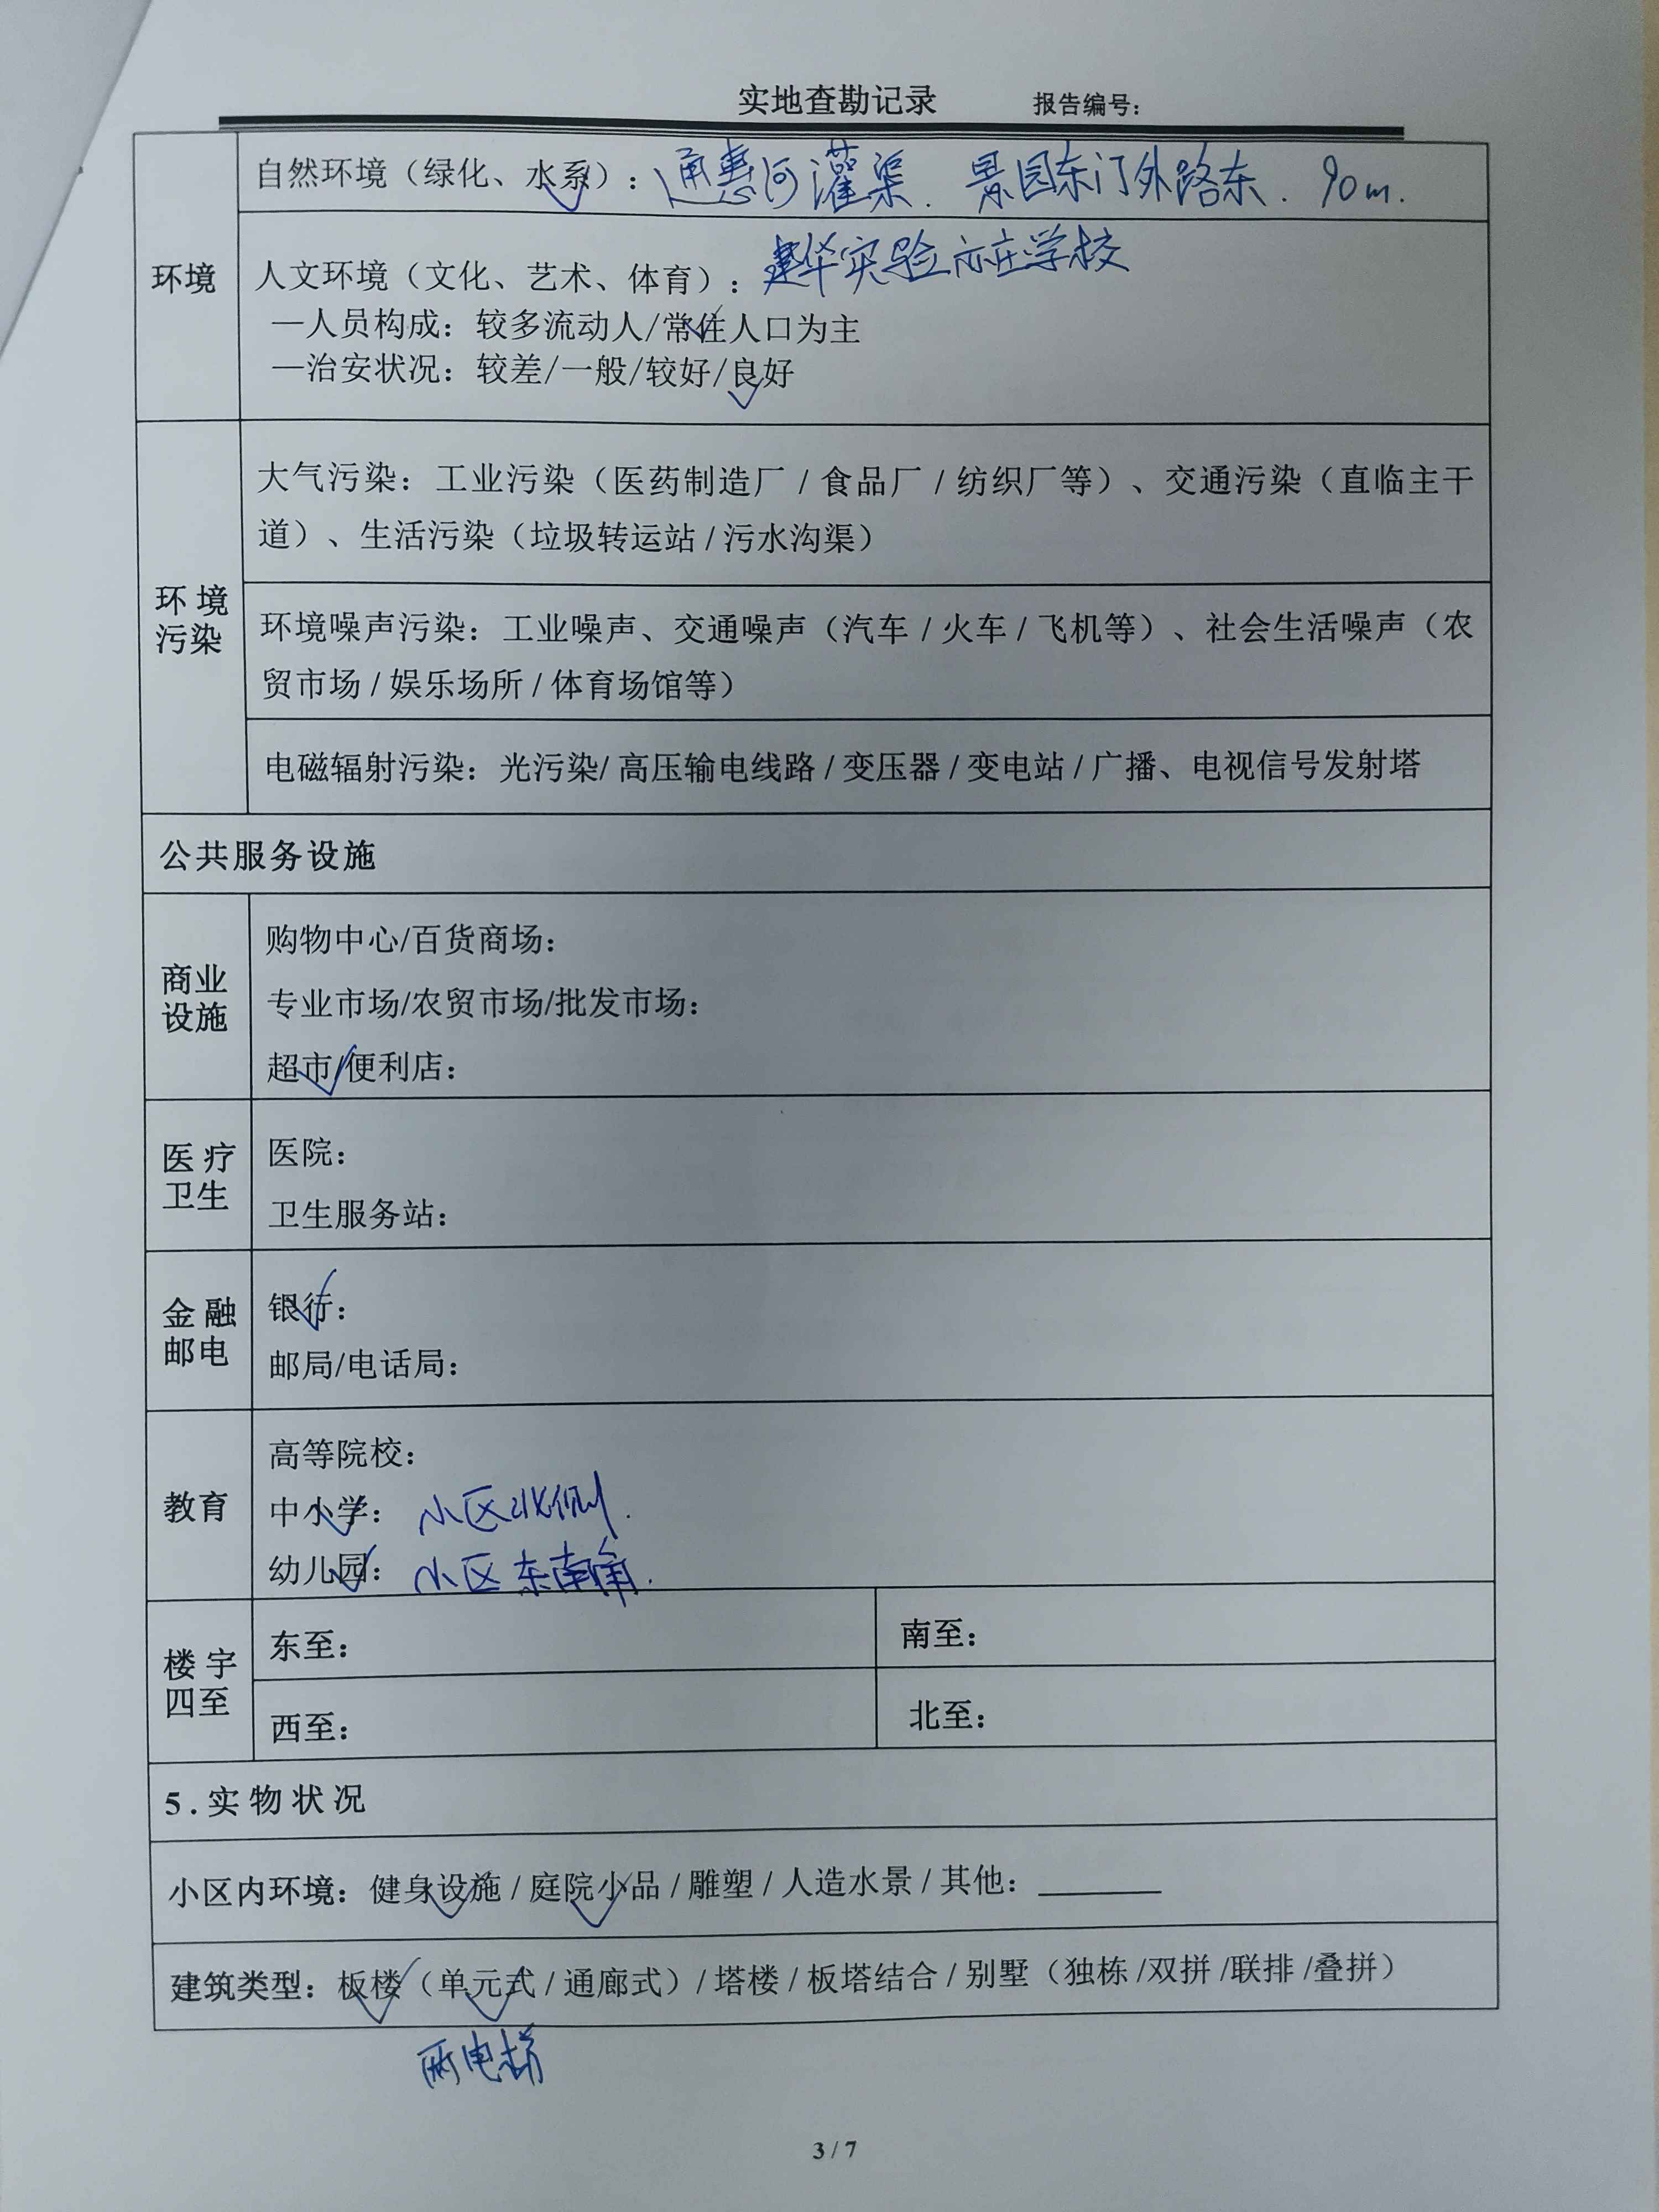 实地查勘记录 报告编号：
环境
自然环境（绿化、水系）：通惠河灌渠. 景园东门外路东. 90m.
人文环境（文化、艺术、体育）：建华实验亦庄学校
—人员构成：较多流动人/常住人口为主
—治安状况：较差/一般/较好/良好
环境
污染
大气污染：工业污染（医药制造厂/食品厂/纺织厂等）、交通污染（直临主干
道）、生活污染（垃圾转运站/污水沟渠）
环境噪声污染：工业噪声、交通噪声（汽车/火车/飞机等）、社会生活噪声（农
贸市场/娱乐场所/体育场馆等）
电磁辐射污染：光污染/高压输电线路/变压器/变电站/广播、电视信号发射塔
公共服务设施
商业
设施
购物中心/百货商场：
专业市场/农贸市场/批发市场：
超市/便利店：
医疗
卫生
医院：
卫生服务站：
金融
邮电
银行：
邮局/电话局：
教育
高等院校：
中小学：小区北侧.
幼儿园：小区东南角.
楼宇
四至
东至： 南至：
西至： 北至：
5.实物状况
小区内环境：健身设施/庭院小品/雕塑/人造水景/其他：
建筑类型：板楼（单元式/通廊式）/塔楼/板塔结合/别墅（独栋/双拼/联排/叠拼）
两电梯
3/7